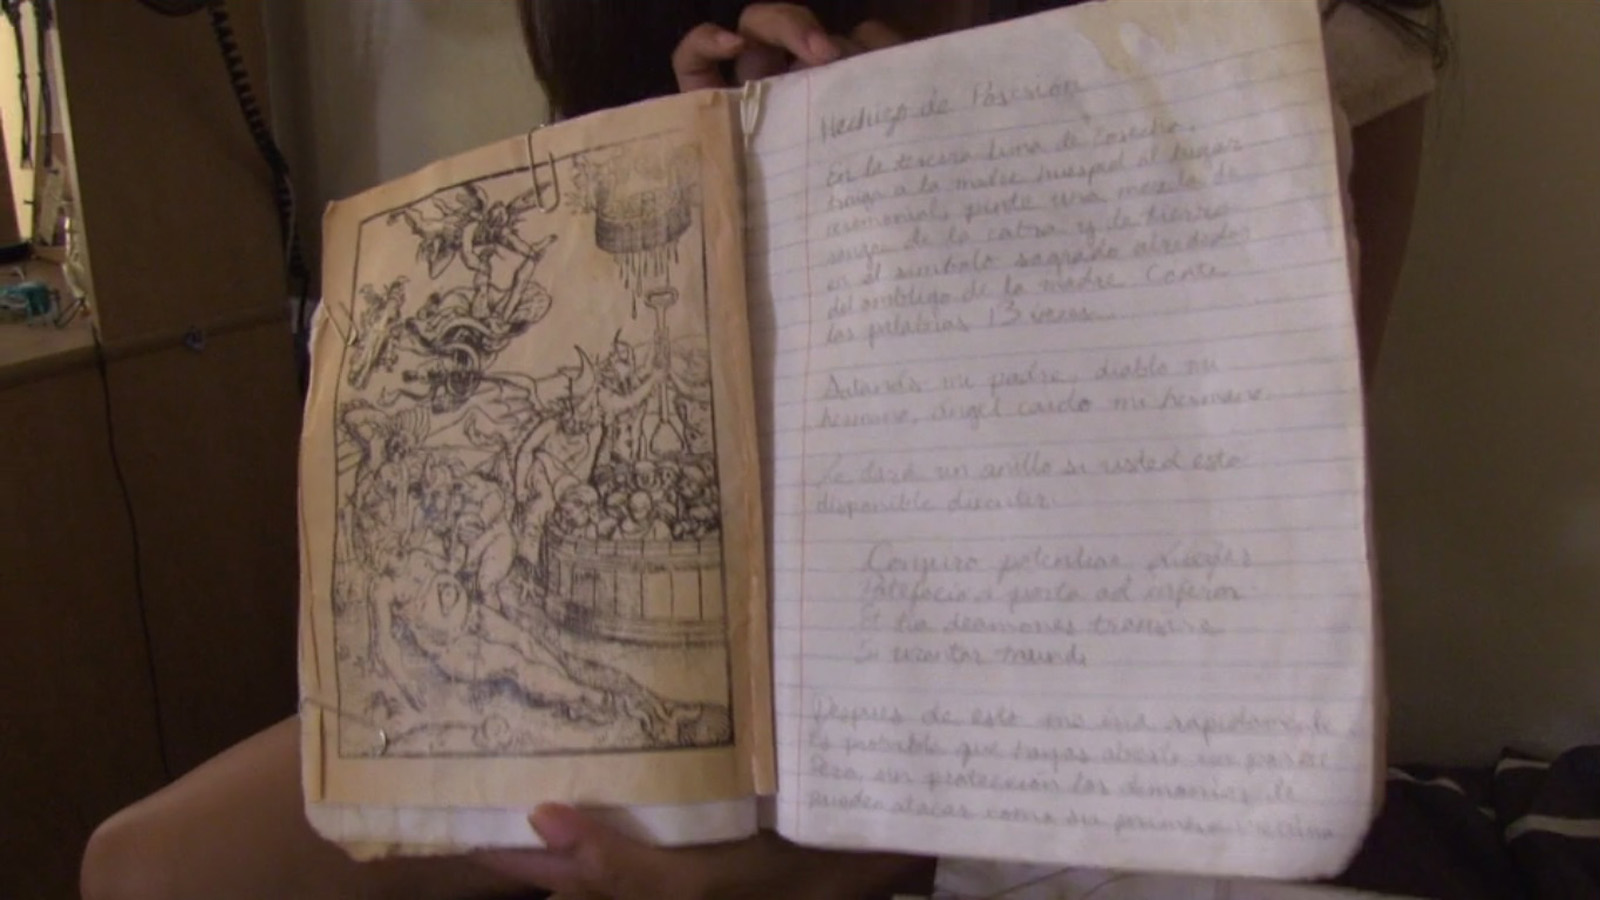 Hechizo de Posesión
En la tercera luna de cosecha,
traiga a la madre huesped al lugar
ceremonial, pinte una mezcla de
sangre de la cabra y de tierra
en el simbolo sagrado alrededor
del ombligo de la madre. Cante
las palabras 13 veces...
Satanás mi padre, diablo mi
hermano, angel caido mi hermano.
Le dará un anillo si usted esta
disponible
Conjuro potentias
porta ad inferon
deamones transire
mundi
Despues de esto rapidamente
Es probable que hayas abierto
Pero, sin protección los demonios te
pueden atacar como su primera victima